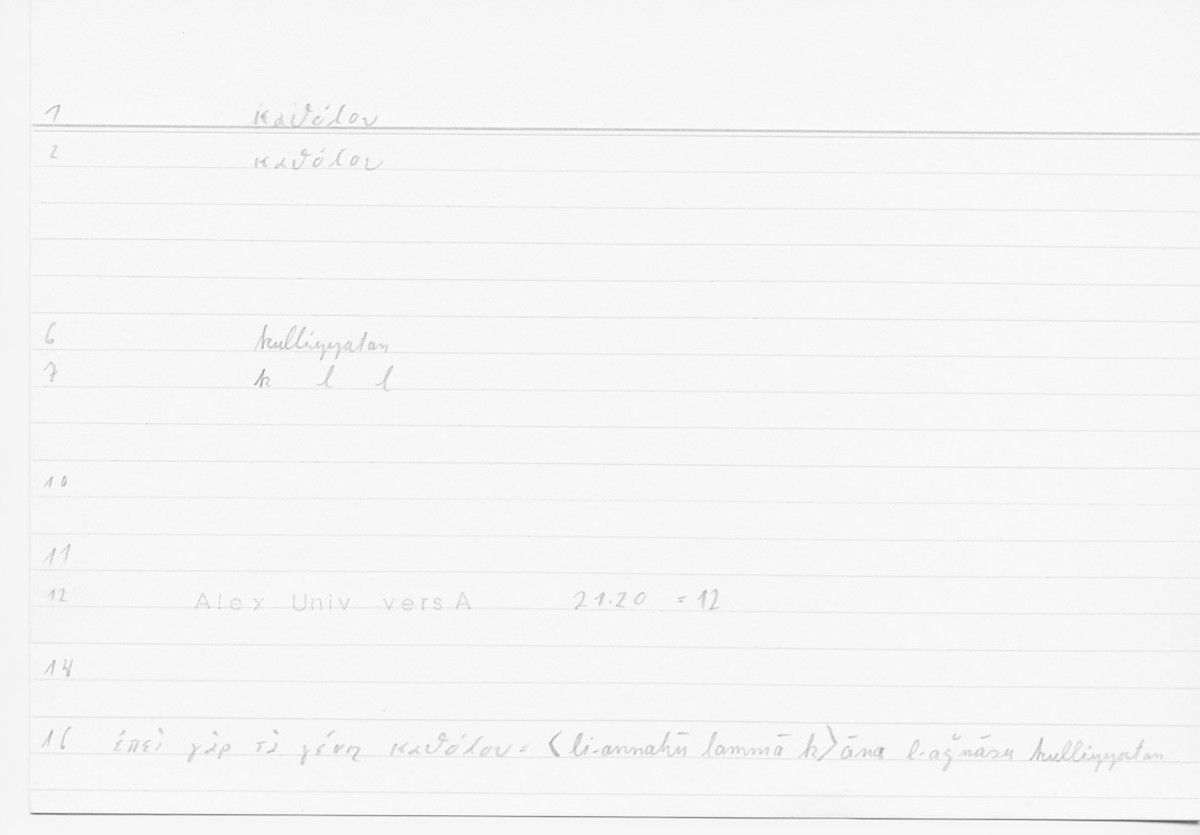 1 καθόλου
2 καθόλου
6 kulliyyatan
7 k l l
10
11
12 Alex Univ vers A 21.20 = 12
14
16 ἐπεὶ γὰρ τὰ γένη καθόλου = ⟨li-annahū lammā k⟩āna l-aǧnāsu kulliyyatan